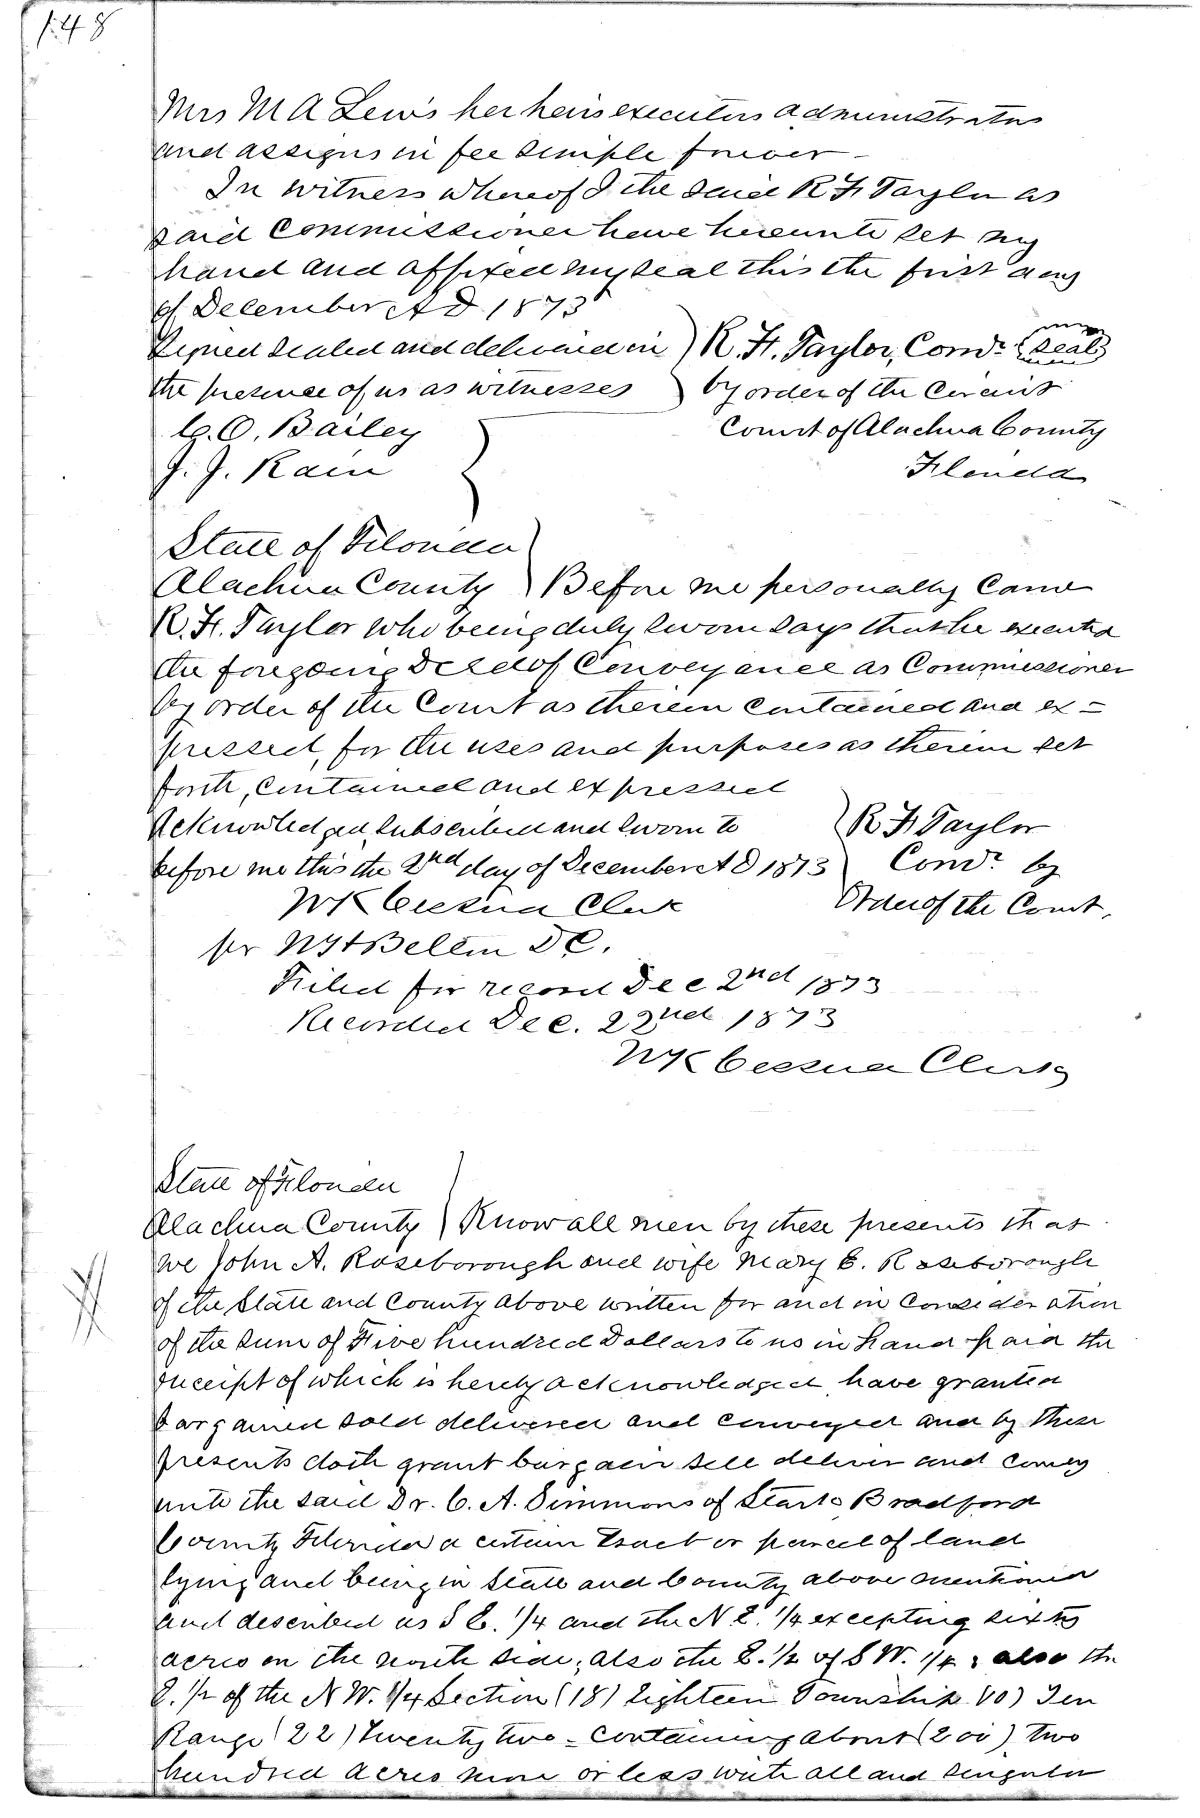 148
Mrs M A Lewis her heirs executors administrators
and assigns in fee simple forever –
In witness whereof I the said R. H. Taylor as
said Commissioner have hereunto set my
hand and affixed my seal this the first day
of December A D 1873
Signed sealed and delivered in ) R. H. Taylor, Comr. (seal)
the presence of us as witnesses ) by order of the Circuit
C. O. Bailey Court of Alachua County
J. J. Rain Florida
State of Florida )
Alachua County ) Before me personally came
R. H. Taylor who being duly sworn says that he executed
the foregoing Deed of Conveyance as Commissioner
by order of the Court as therein contained and ex=
pressed, for the uses and purposes as therein set
forth, contained and expressed
Acknowledged, subscribed and sworn to ) R H Taylor
before me this the 2nd day of December A D 1873 ) Comr. by
W K Cessna Clerk Order of the Court.
pr Belton D C.
Filed for record Dec 2nd 1873
Recorded Dec. 22nd 1873
W K Cessna Clerk
State of Florida )
Alachua County ) Know all men by these presents that
we John A. Roseborough and wife Mary E. Roseborough
of the State and County above written for and in consideration
of the sum of Five hundred Dollars to us in hand paid the
receipt of which is hereby acknowledged, have granted
bargained sold delivered and conveyed and by these
presents doth grant bargain sell deliver and convey
unto the said Dr. C. A. Simmons of Starke Bradford
County Florida a certain tract or parcel of land
lying and being in State and County above mentioned
and described as S E. 1/4 and the N E. 1/4 excepting sixty
acres on the north side; also the E. 1/2 of S W. 1/4; also the
E. 1/2 of the N W. 1/4 Section (18) Eighteen Township (10) Ten
Range (22) twenty two – containing about (200) two
hundred acres more or less with all and singular